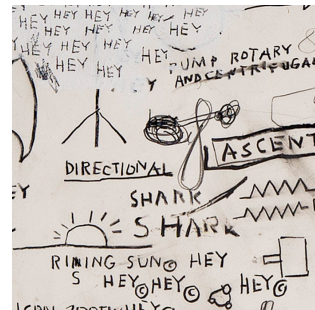 HEY HEY HEY HEY
HEY HEY HEY HEY HEY
HEY HEY HEY HEY
HEY HEY
PUMP ROTARY
AND CENTRIFUGAL
ASCENT
DIRECTIONAL
SHARK
SHARK
RIMING SUN© HEY
S
HEY© HEY© HEY©